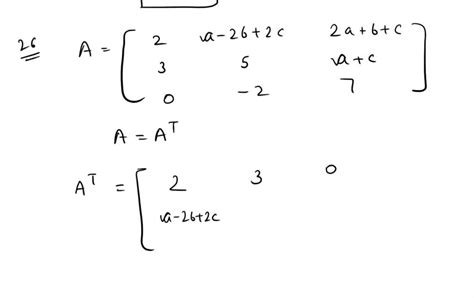 26 A = [ 2 a-2b+2c 2a+b+c
3 5 a+c
0 -2 7 ]
A = Aᵀ
Aᵀ = [ 2 3 0
a-2b+2c